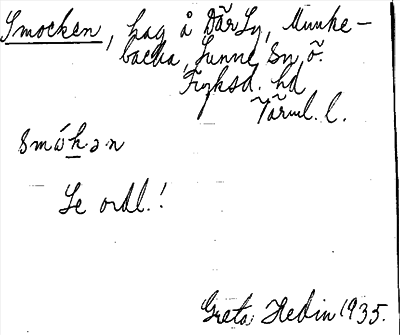 Smocken, hag å Där Sy, Munke-
backa, Sunne Sn, ö.
Fryksd. hd
Värml. l.
smókən
Se ordl.!
Greta Hedin 1935.